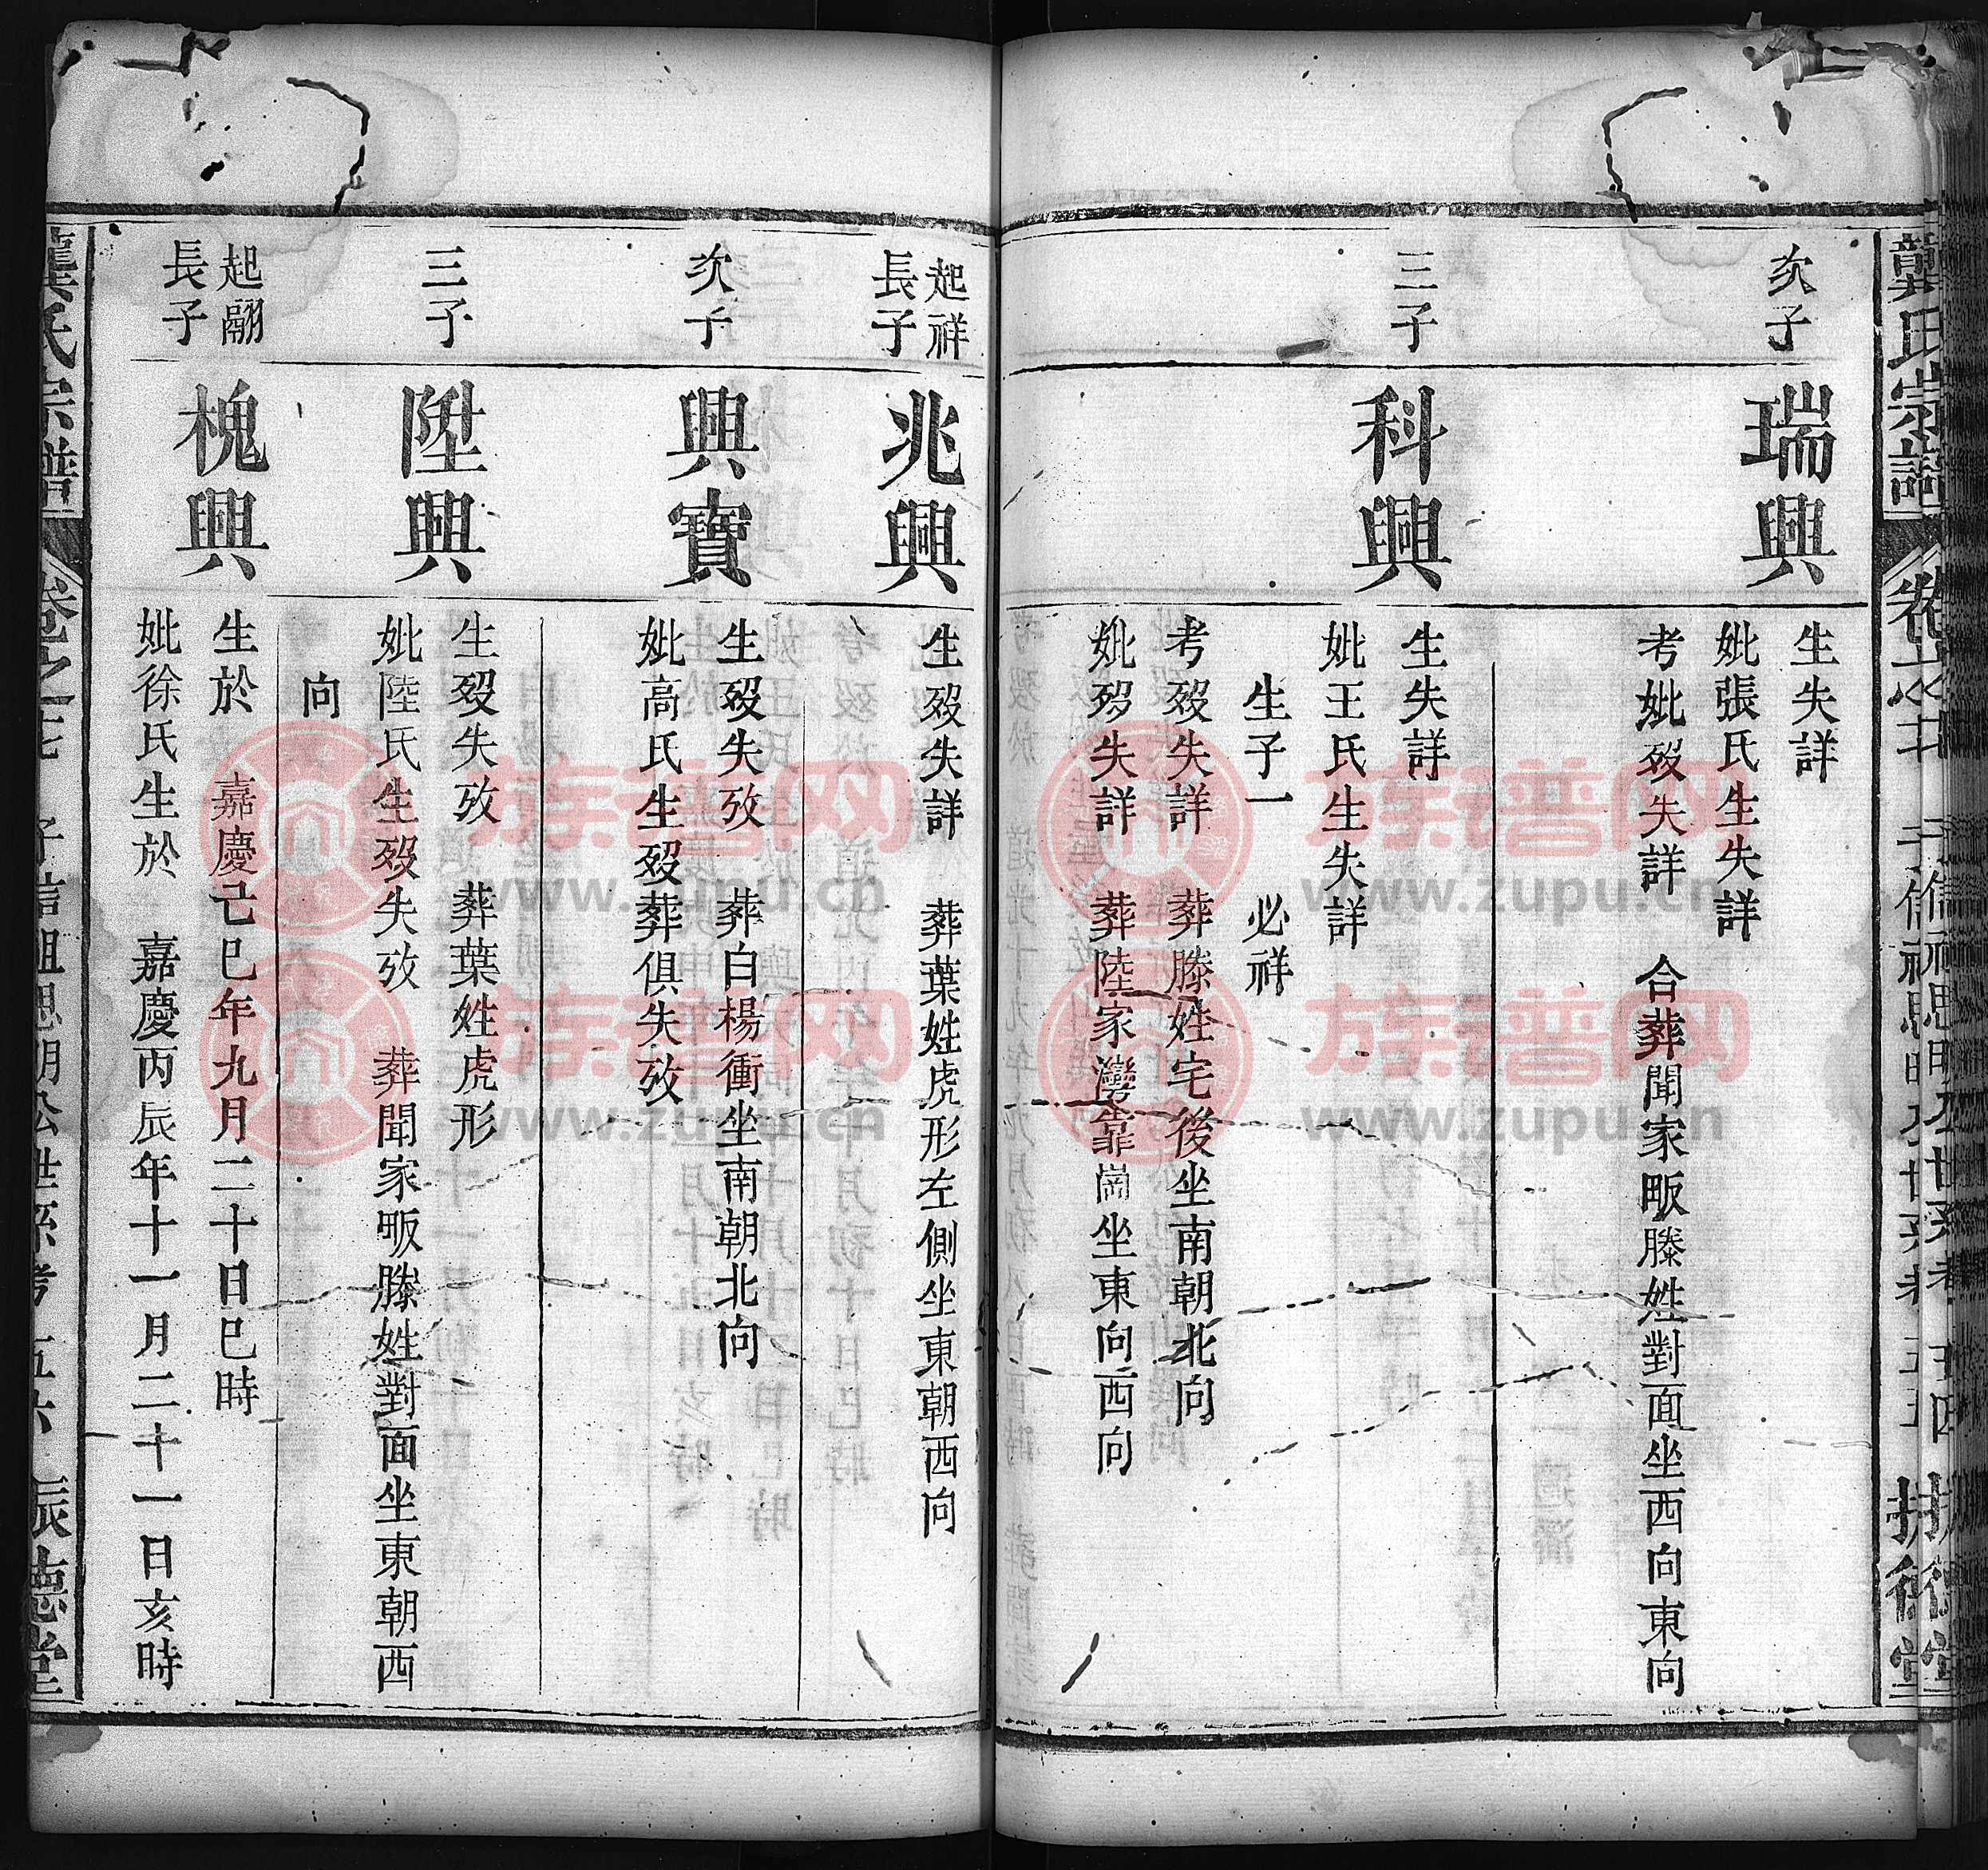 次子
瑞興
生失詳
妣張氏生失詳
考妣歿失詳 合葬聞家畈滕姓對面坐西向東向
三子
科興
生失詳
妣王氏生失詳
生子一 必祥
考歿失詳 葬滕姓宅後坐南朝北向
妣歿失詳 葬陸家灣靠崗坐東向西向
起祥
長子
兆興
生歿失詳 葬葉姓虎形左側坐東朝西向
次子
興寶
生歿失攷 葬白楊衝坐南朝北向
妣高氏生歿葬俱失攷
三子
陞興
生歿失攷 葬葉姓虎形
妣陸氏生歿失攷 葬聞家畈滕姓對面坐東朝西
向
起翮
長子
槐興
生於 嘉慶己巳年九月二十日巳時
妣徐氏生於 嘉慶丙辰年十一月二十一日亥時
龔氏宗譜
族谱网
www.zupu.cn
族谱网
www.zupu.cn
族谱网
www.zupu.cn
族谱网
www.zupu.cn